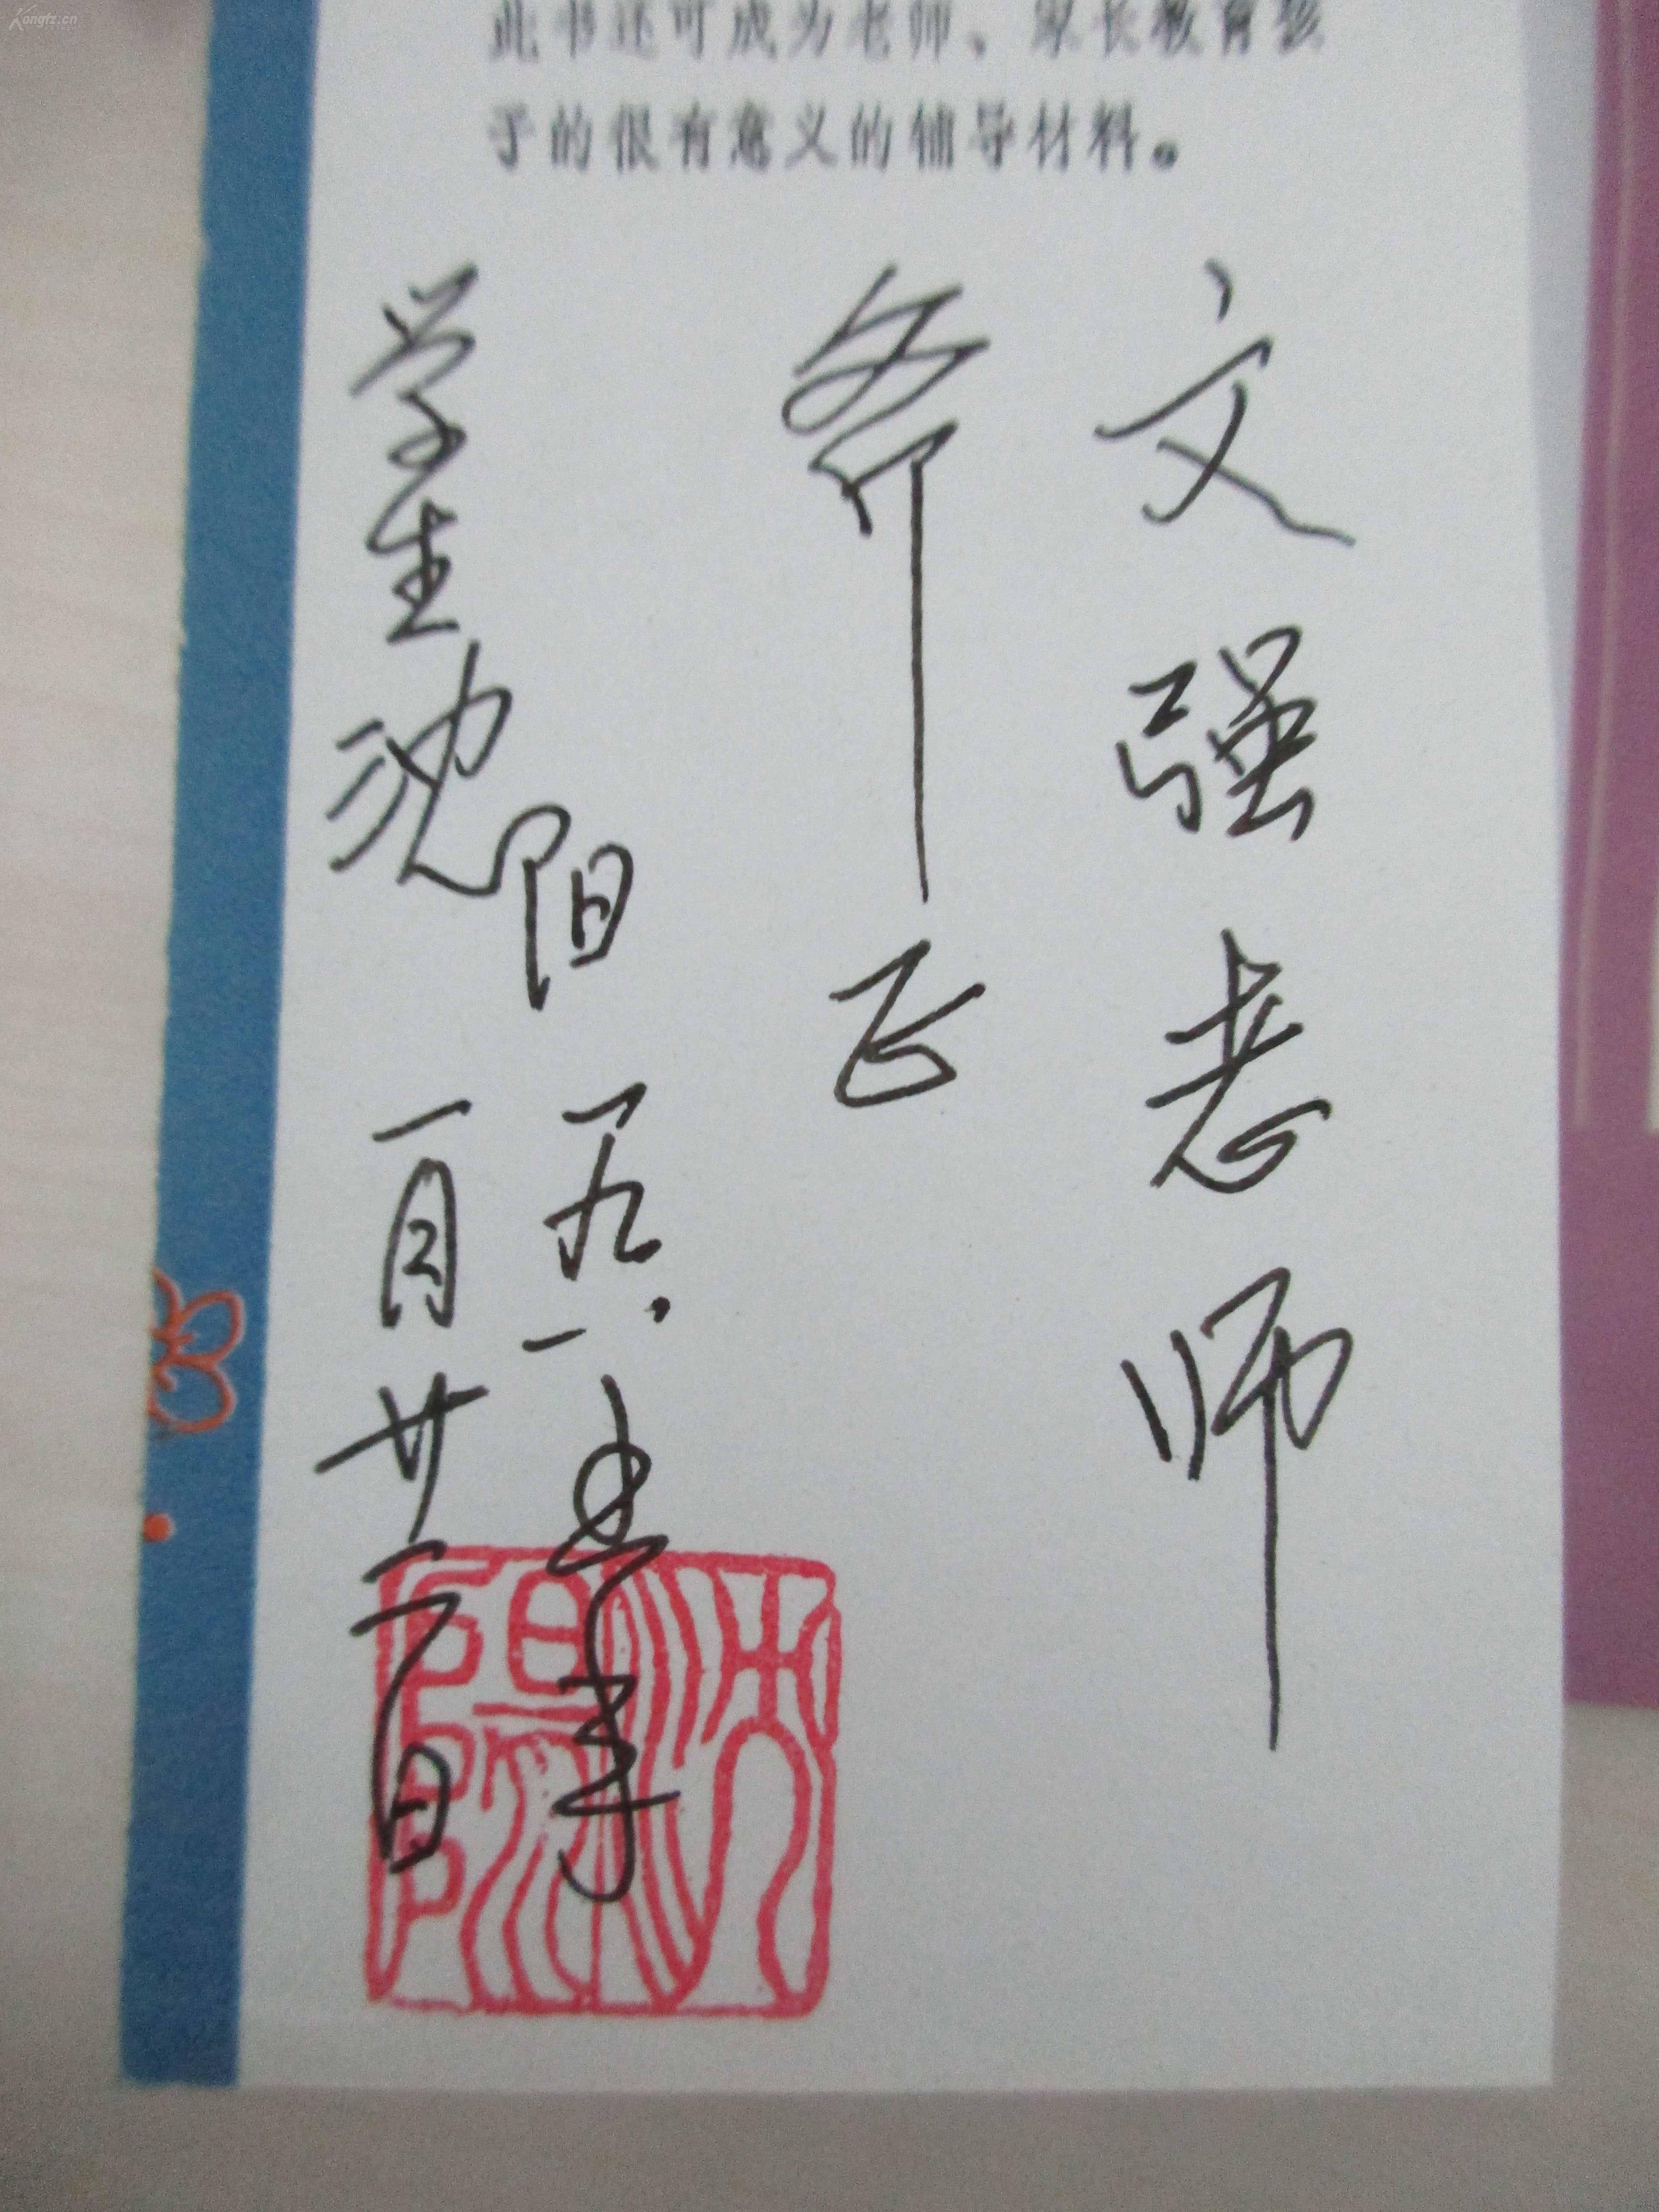 Kongfz.cn
此书还可成为老师、家长教育孩
子的很有意义的辅导材料。
文强老师
斧正
学生沈阳
一月廿日